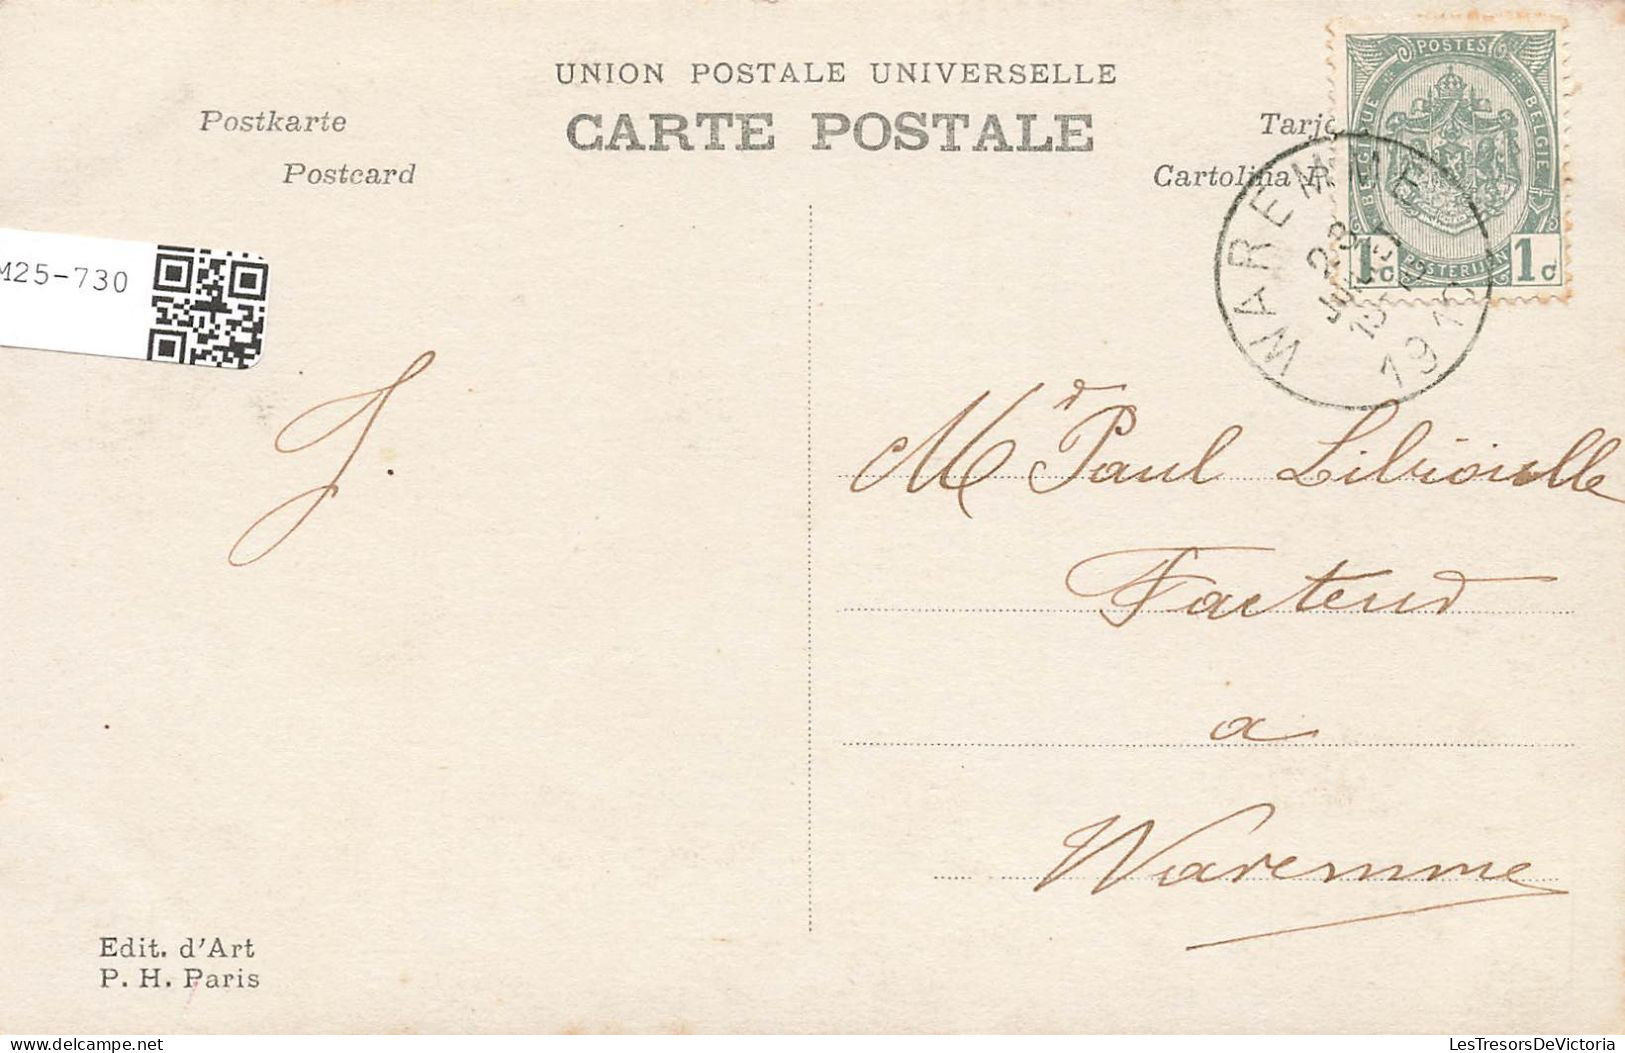 UNION POSTALE UNIVERSELLE
CARTE POSTALE
Postkarte
Postcard
Tarj
Cartolina P
POSTES
BELGIQUE
BELGIE
POSTERIJEN
1c 1c
WAREMME
23
1910
M25-730
J.
Mr Paul
Facteur
a
Waremme
Edit. d'Art
P. H. Paris
LesTresorsDeVictoria